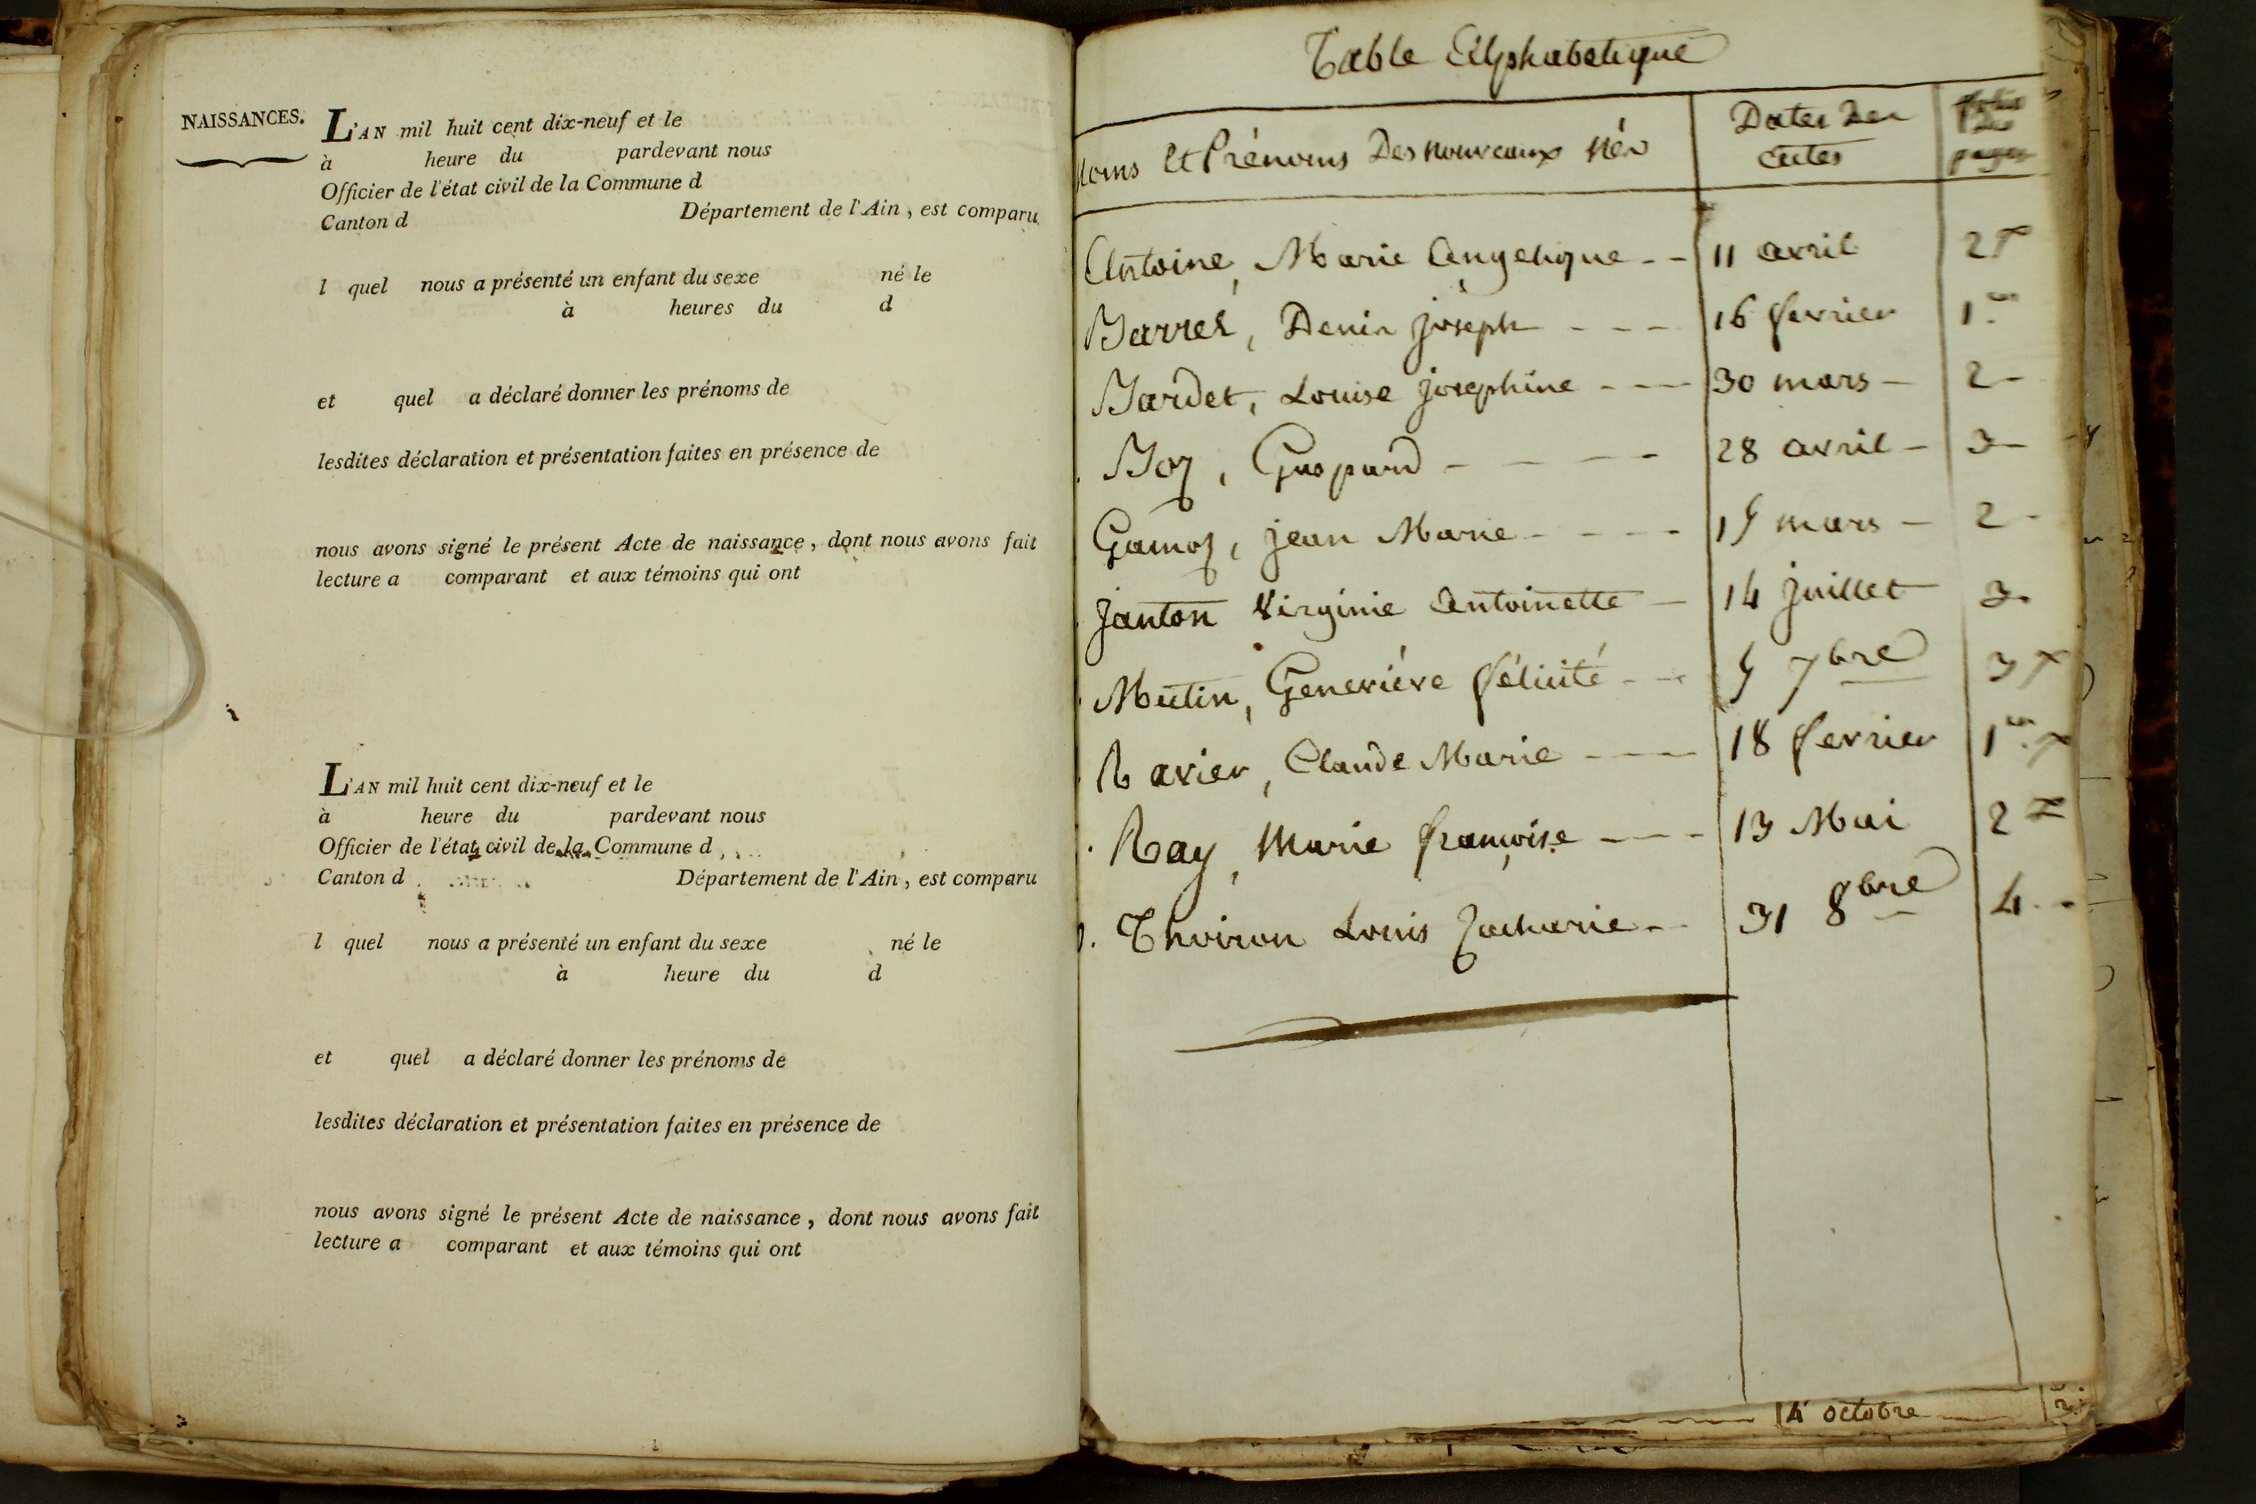 NAISSANCES.
L'AN mil huit cent dix-neuf et le
à heure du pardevant nous
Officier de l'état civil de la Commune d
Canton d Département de l'Ain, est comparu
l quel nous a présenté un enfant du sexe né le
à heures du d
et quel a déclaré donner les prénoms de
lesdites déclaration et présentation faites en présence de
nous avons signé le présent Acte de naissance, dont nous avons fait
lecture a comparant et aux témoins qui ont
L'AN mil huit cent dix-neuf et le
à heure du pardevant nous
Officier de l'état civil de la Commune d
Canton d Département de l'Ain, est comparu
l quel nous a présenté un enfant du sexe né le
à heure du d
et quel a déclaré donner les prénoms de
lesdites déclaration et présentation faites en présence de
nous avons signé le présent Acte de naissance, dont nous avons fait
lecture a comparant et aux témoins qui ont
1
Table Alphabetique
Noms et Prénoms Des nouveaux Nés
Dates Des
actes
des
pages
Antoine, Marie Angelique -- 11 avril 2
Barrel, Denis joseph --- 16 fevrier 1er
Bardet, Louise josephine ---- 30 mars - 2 -
Boz, Gaspard ---- 28 avril - 3 -
Gamoz, jean Marie ---- 15 mars - 2 -
Janton Virginie Antoinette - 14 juillet 3
Mutin, Geneviéve félicité --- 5 7bre 3
Ravier, Claude Marie ---- 18 fevrier 1er
Ray, Marie françoise ---- 13 Mai 2
Thoiron Louis Zacharie -- 31 8bre 4 --
4 octobre